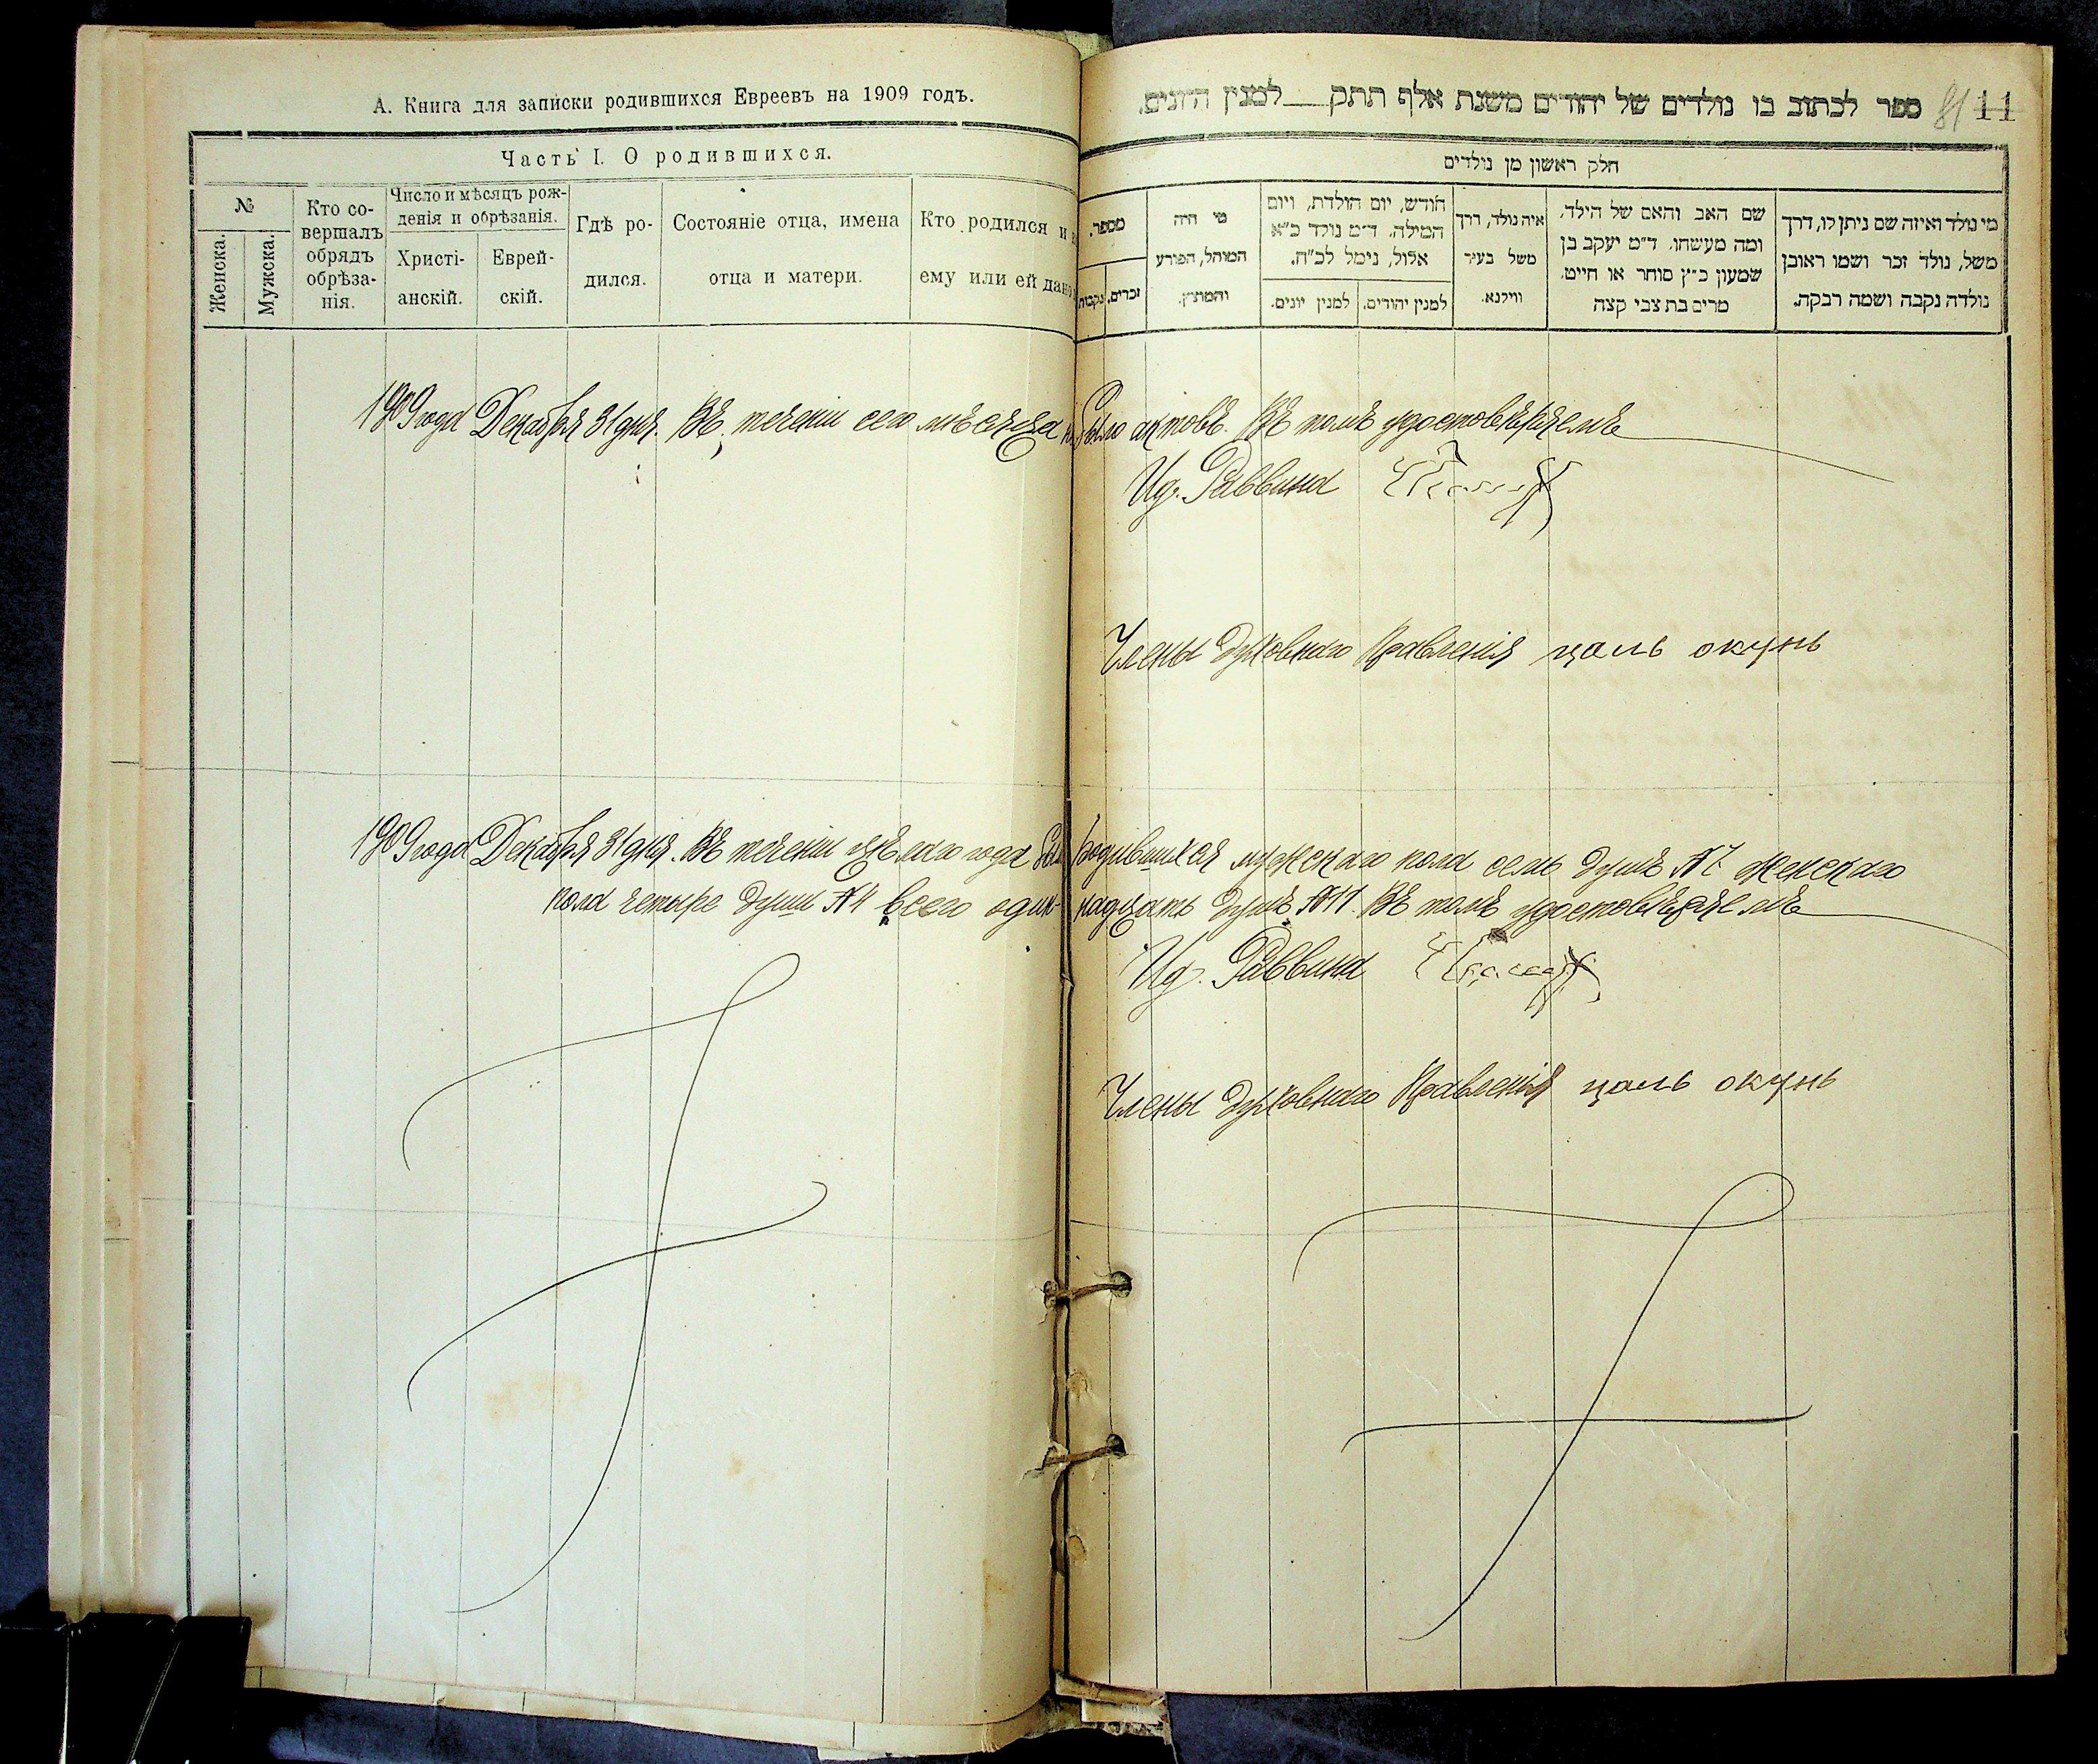 А. Книга для записки родившихся Евреевъ на 1909 годъ.
Часть I. О родившихся.
№
Женска.
Мужска.
Кто со-
вершалъ
обрядъ
обрѣза-
нія.
Число и мѣсяцъ рож-
денія и обрѣзанія.
Христі-
анскій.
Еврей-
скій.
Гдѣ ро-
дился.
Состояніе отца, имена
отца и матери.
Кто родился и
ему или ей дано
ספר לכתוב בו נולדים של יהודים משנת אלף תתק למנין היונים.
81 11
חלק ראשון מן נולדים
מי נולד ואיזה שם ניתן לו, דרך
משל, נולד זכר ושמו ראובן
נולדה נקבה ושמה רבקה.
שם האב והאם של הילד,
ומה מעשהו, ד״מ יעקב בן
שמעון כ״ץ סוחר או חייט,
מרים בת צבי קצה
איה נולד, דרך
משל בעיר
ווילנא.
חודש, יום הולדת, ויום
המילה, ד״מ נולד כ״א
אלול, נימל לכ״ח.
למנין יהודים.
למנין יונים.
מי היה
המוהל, הפורע
והמוצץ.
מספר.
זכרים.
נקבות
1909 года Декабря 31 дня. Въ теченіи сего мѣсяца не было актовъ. Въ томъ удостовѣряемъ
Ид. Раввина
Члены Духовнаго Правленія цаль окунь
1909 года Декабря 31 дня. Въ теченіи цѣлаго года было родившихся мужескаго пола семь душъ №7 женскаго
пола четыре души №4 всего одиннадцать душъ №11. Въ томъ удостовѣряемъ
Ид. Раввина
Члены Духовнаго Правленія цаль окунь